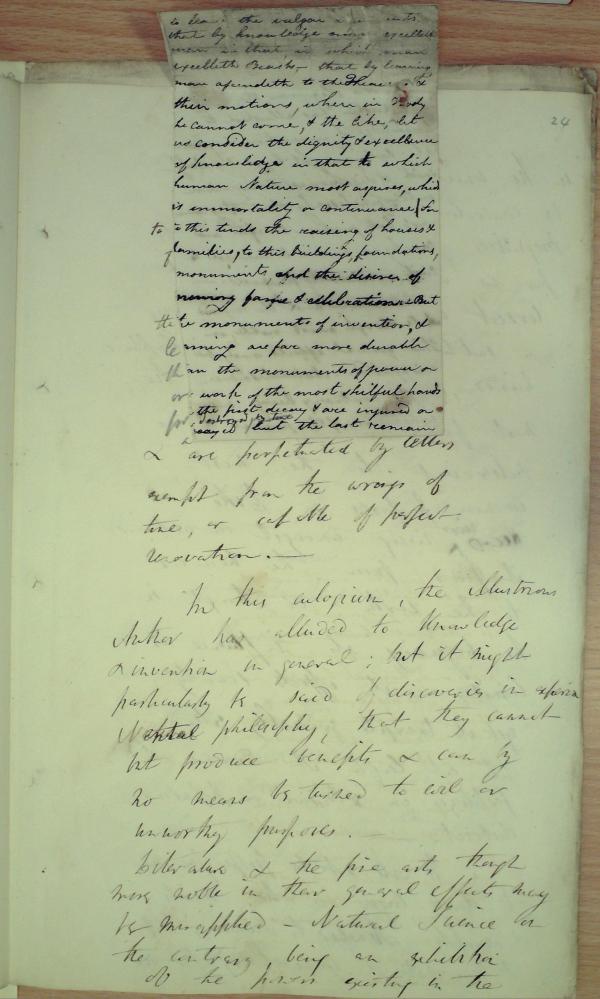 24
to the vulgar
that by knowledge man excelleth
man in that in which man
excelleth Beasts, - that by learning
man ascendeth to the Heavens &
their motions, where in Body
he cannot come, & the like, let
us consider the dignity & excellence
of knowledge in that to which
human Nature most aspires, which
is immortality or continuance
to this tends the raising of houses &
families, to this buildings, foundations,
monuments, and the desires of
memory fame & celebration. But
the monuments of invention, &
learning are far more durable
than the monuments of power or
or work of the most skilful hands
for the first decay & are injured or
destroyed by time but the last remain
& are perpetuated by letters
exempt from the wrongs of
time, or capable of perfect
renovation. —
In this eulogium, the illustrious
Author has alluded to Knowledge
& invention in general; but it might
particularly be said of discoveries in experi
mental philosophy, that they cannot
but produce benefits & can by
no means be turned to evil or
unworthy purposes. —
Literature & the fine arts though
more noble in their general effects may
be misapplied - Natural Science on
the contrary, being an exhibition
of the powers existing in the